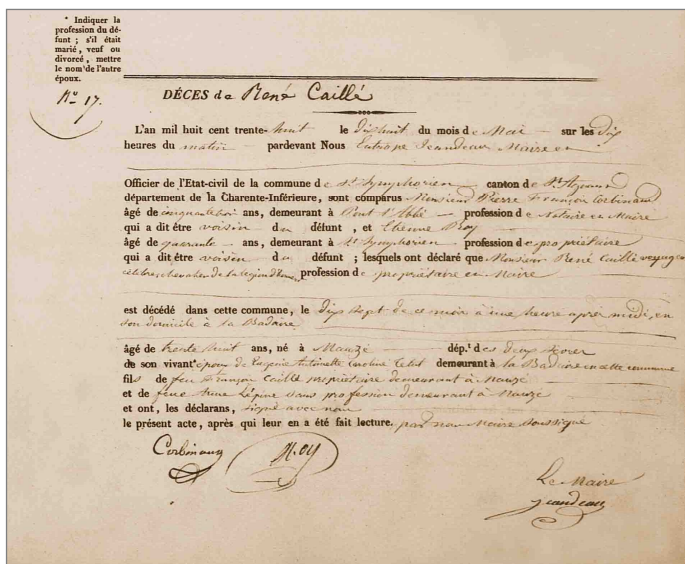 * Indiquer la
profession du dé-
funt ; s'il était
marié, veuf ou
divorcé, mettre
le nom de l'autre
époux.
No 17.
DÉCES de René Caillé
L'an mil huit cent trente-huit le dix huit du mois de Mai sur les dix
heures du matin pardevant Nous Eutrope Jeandeau Maire et
Officier de l'Etat-civil de la commune de St Symphorien canton de St Agnant
département de la Charente-Inférieure, sont comparus Monsieur Pierre François Corbinaud
âgé de ans, demeurant à Pont l'Abbé profession de Notaire et Maire
qui a dit être voisin du défunt, et Etienne Roy
âgé de quarante ans, demeurant à St Symphorien profession de propriétaire
qui a dit être voisin du défunt ; lesquels ont déclaré que Monsieur René Caillé voyageur
célèbre chevalier de la légion d'honneur profession de propriétaire et Maire
est décédé dans cette commune, le dix sept de ce mois à une heure après midi, en
son domicile à la Badaire
âgé de trente huit ans, né à Mauzé dép.t des deux Sèvres
de son vivant époux de Eugénie Antoinette Caroline Tetut demeurant à la Badaire en cette commune
fils de feu François Caillé propriétaire demeurant à Mauzé
et de feue Anne Lépine sans profession demeurant à Mauzé
et ont, les déclarans, signé avec nous
le présent acte, après qui leur en a été fait lecture. par nous Maire soussigné
Corbinaud Roy
Le Maire
Jeandeau